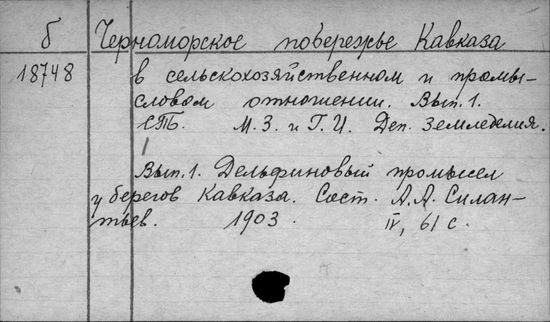 б Черноморское побережье Кавказа
18748 в сельскохозяйственном и промы-
словом отношении. Вып. 1.
СПБ. М.З. и Г.И. Деп. Земледелия.
Вып. 1. Дельфиновый промысел
у берегов Кавказа. Сост. А.А. Силан-
тьев. 1903. IV, 61 с.